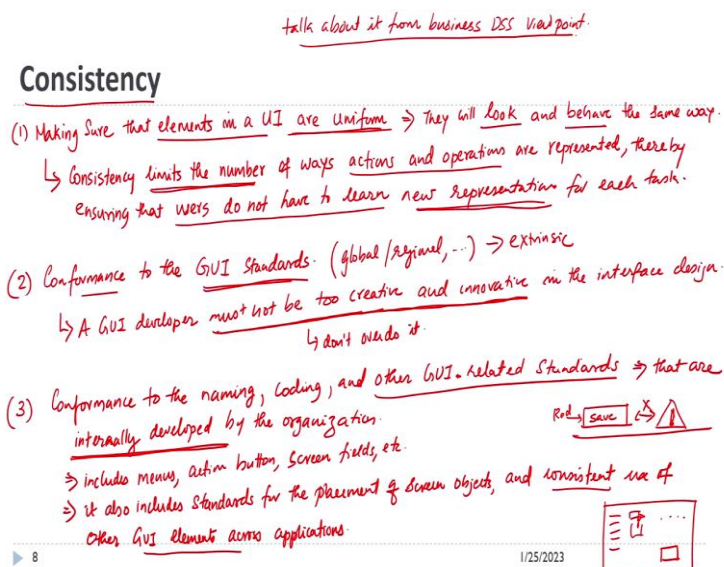 talk about it from business DSS viewpoint.
Consistency
(1) Making Sure that elements in a UI are uniform ⇒ They will look and behave the same way.
↳ Consistency limits the number of ways actions and operations are represented, thereby
ensuring that users do not have to learn new representation for each task.
(2) Conformance to the GUI Standards. (global/regional, ...) → extrinsic
↳ A GUI developer must not be too creative and innovative in the interface design.
↳ don't overdo it.
(3) Conformance to the naming, coding, and other GUI-related Standards ⇒ that are
internally developed by the organization.
Red → save ↔ X !
⇒ includes menus, action button, screen fields, etc.
⇒ it also includes standards for the placement of screen objects, and consistent use of
other GUI elements across applications.
8 1/25/2023